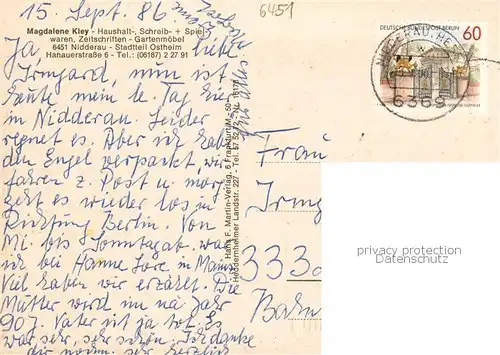 15. Sept. 86
6451
Magdalene Kley - Haushalt-, Schreib- + Spiel-
waren, Zeitschriften - Gartenmöbel
6451 Nidderau - Stadtteil Ostheim
Hanauerstraße 6 - Tel.: (06187) 2 27 91
Ja, liebe
Irmgard, nun ist
heute mein le. Tag hier
in Nidderau. Leider
regnet es. Aber ich habe
den Engel verpackt, wir
fahren z. Post u. morg.
geht es wieder los in
Richtung Berlin. Von
Mi. bis Sonntagab. war
ich bei Hanne Lore in Mainz
Viel haben wir erzählt. Die
Mutter wird im na Jahr
90J. Vater ist ja tot. Es
war sehr, sehr schön. Ich danke
dir herzlich
Hans F. Martin-Verlag, 6 Frankfurt/M - 50
Heddernheimer Landstr. 227 - Tel. 57 52 72
DEUTSCHE BUNDESPOST BERLIN
60
6369
Frau
Irmg
333
privacy protection
Datenschutz